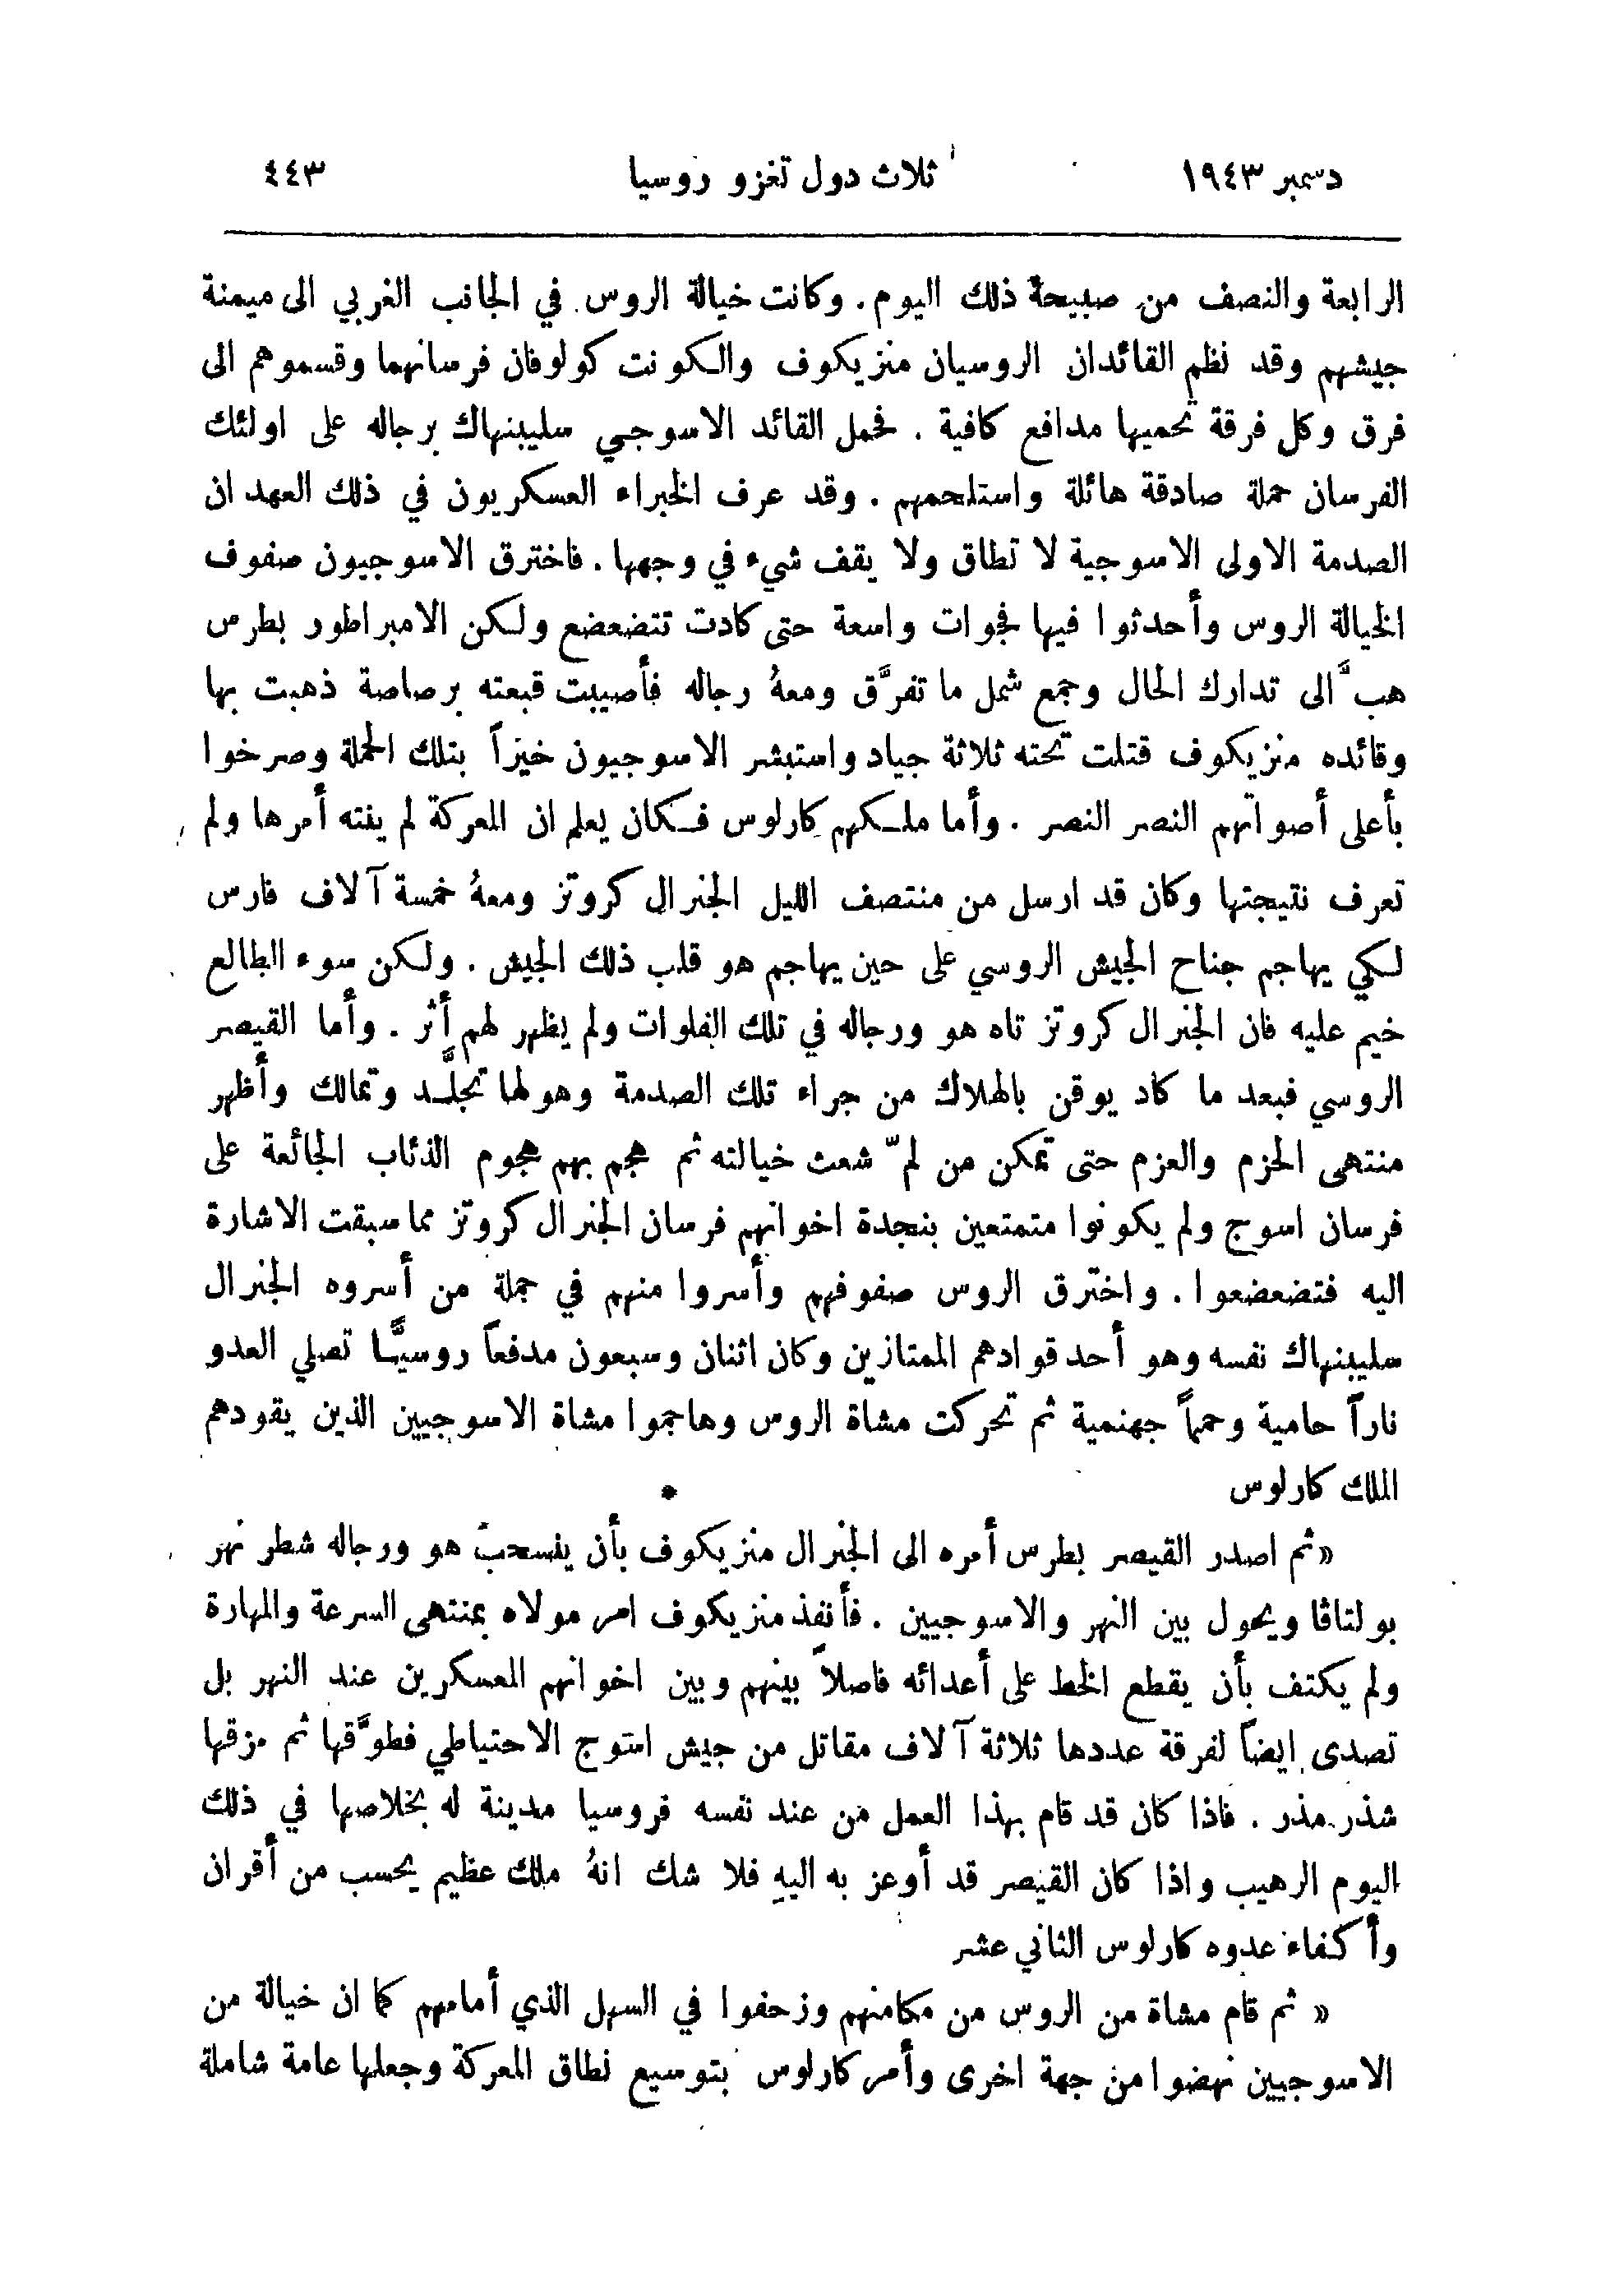 دسمبر ١٩٤٣ ثلاث دول تغزو روسيا ٤٤٣
الرابعة والنصف من صبيحة ذلك اليوم. وكانت خيالة الروس في الجانب الغربي الى ميمنة
جيشهم وقد نظم القائدان الروسيان منزيكوف والكونت كولوفان فرسانهما وقسموهم الى
فرق وكل فرقة تحميها مدافع كافية. فحمل القائد الاسوجي سليبنهاك برجاله على اولئك
الفرسان حملة صادقة هائلة واستلحمهم. وقد عرف الخبراء العسكريون في ذلك العهد ان
الصدمة الاولى الاسوجية لا تطاق ولا يقف شيء في وجهها. فاخترق الاسوجيون صفوف
الخيالة الروس وأحدثوا فيها فجوات واسعة حتى كادت تتضعضع ولكن الامبراطور بطرس
هبَّ الى تدارك الحال وجمع شمل ما تفرَّق ومعهُ رجاله فأصيبت قبعته برصاصة ذهبت بها
وقائده منزيكوف قتلت تحته ثلاثة جياد واستبشر الاسوجيون خيراً بتلك الحملة وصرخوا
بأعلى أصواتهم النصر النصر. وأما ملكهم كارلوس فكان يعلم ان المعركة لم يفته أمرها ولم
تعرف نتيجتها وكان قد ارسل من منتصف الليل الجنرال كروتز ومعهُ خمسة آلاف فارس
لكي يهاجم جناح الجيش الروسي على حين يهاجم هو قلب ذلك الجيش. ولكن سوء الطالع
خيم عليه فان الجنرال كروتز تاه هو ورجاله في تلك الفلوات ولم يظهر لهم أثر. وأما القيصر
الروسي فبعد ما كاد يوقن بالهلاك من جراء تلك الصدمة وهولها تجلَّد وتمالك وأظهر
منتهى الحزم والعزم حتى تمكن من لمّ شعث خيالته ثم هجم بهم هجوم الذئاب الجائعة على
فرسان اسوج ولم يكونوا متمتعين بنجدة اخوانهم فرسان الجنرال كروتز مما سبقت الاشارة
اليه فتضعضعوا. واخترق الروس صفوفهم وأسروا منهم في جملة من أسروه الجنرال
سليبنهاك نفسه وهو أحد قوادهم الممتازين وكان اثنان وسبعون مدفعاً روسيًّا تصلي العدو
ناراً حامية وحمماً جهنمية ثم تحركت مشاة الروس وهاجموا مشاة الاسوجيين الذين يقودهم
الملك كارلوس *
«ثم اصدر القيصر بطرس أمره الى الجنرال منزيكوف بأن ينسحب هو ورجاله شطر نهر
بولتاڤا ويحول بين النهر والاسوجيين. فأنفذ منزيكوف امر مولاه بمنتهى السرعة والمهارة
ولم يكتف بأن يقطع الخط على أعدائه فاصلاً بينهم وبين اخوانهم المعسكرين عند النهر بل
تصدى ايضاً لفرقة عددها ثلاثة آلاف مقاتل من جيش اسوج الاحتياطي فطوَّقها ثم مزقها
شذر مذر. فاذا كان قد قام بهذا العمل من عند نفسه فروسيا مدينة له بخلاصها في ذلك
اليوم الرهيب واذا كان القيصر قد أوعز به اليهِ فلا شك انهُ ملك عظيم يحسب من أقران
وأكفاء عدوه كارلوس الثاني عشر
« ثم قام مشاة من الروس من مكامنهم وزحفوا في السهل الذي أمامهم كما ان خيالة من
الاسوجيين نهضوا من جهة اخرى وأمر كارلوس بتوسيع نطاق المعركة وجعلها عامة شاملة